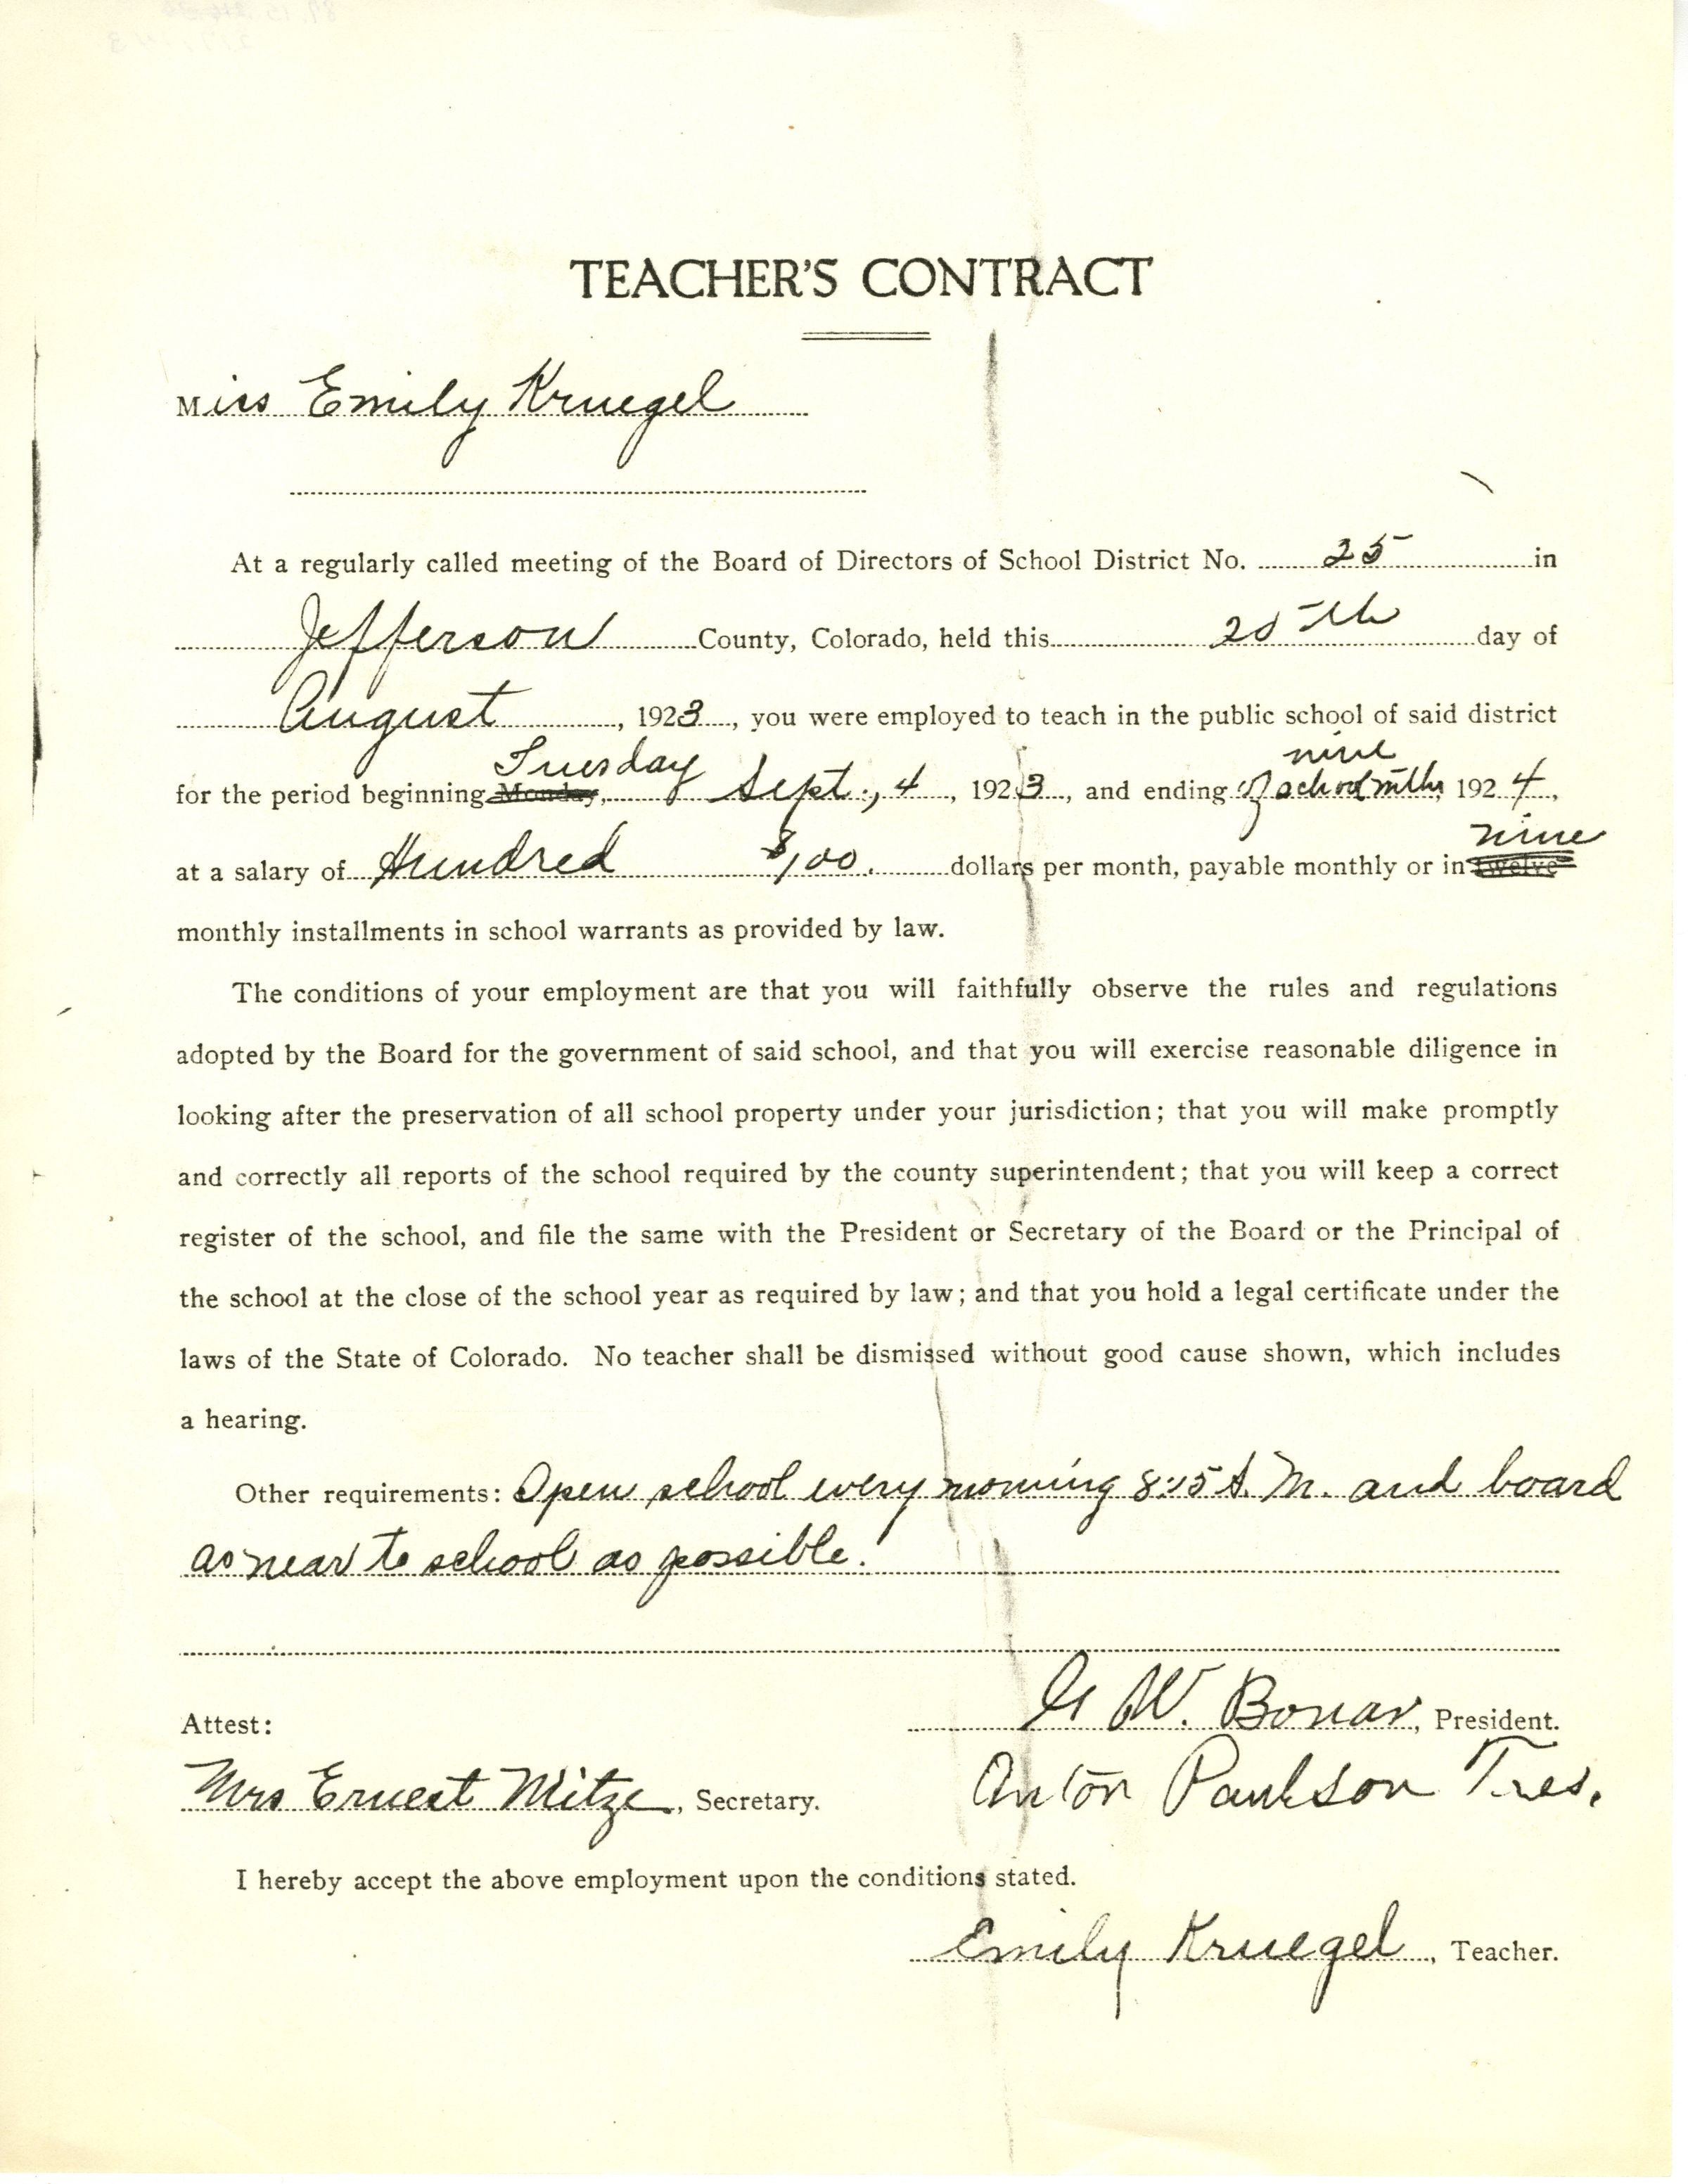 TEACHER'S CONTRACT
Miss Emily Kruegel
At a regularly called meeting of the Board of Directors of School District No. 25 in
Jefferson County, Colorado, held this 25th day of
August, 1923, you were employed to teach in the public school of said district
Tuesday nine
for the period beginning Monday, Sept., 4, 1923, and ending of school mths, 1924,
nine
at a salary of Hundred $100. dollars per month, payable monthly or in twelve
monthly installments in school warrants as provided by law.
The conditions of your employment are that you will faithfully observe the rules and regulations
adopted by the Board for the government of said school, and that you will exercise reasonable diligence in
looking after the preservation of all school property under your jurisdiction; that you will make promptly
and correctly all reports of the school required by the county superintendent; that you will keep a correct
register of the school, and file the same with the President or Secretary of the Board or the Principal of
the school at the close of the school year as required by law; and that you hold a legal certificate under the
laws of the State of Colorado. No teacher shall be dismissed without good cause shown, which includes
a hearing.
Other requirements: Open school every morning 8:15 A.M. and board
as near to school as possible.
G W. Bonar, President.
Attest:
Anton Paulson Tres.
Mrs Ernest Mitze, Secretary.
I hereby accept the above employment upon the conditions stated.
Emily Kruegel, Teacher.